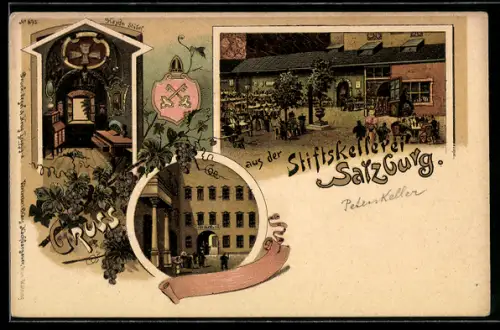 Nº 692
Haydn Stübl
Gruss
aus der
Stiftskellerei
Salzburg.
Peterskeller